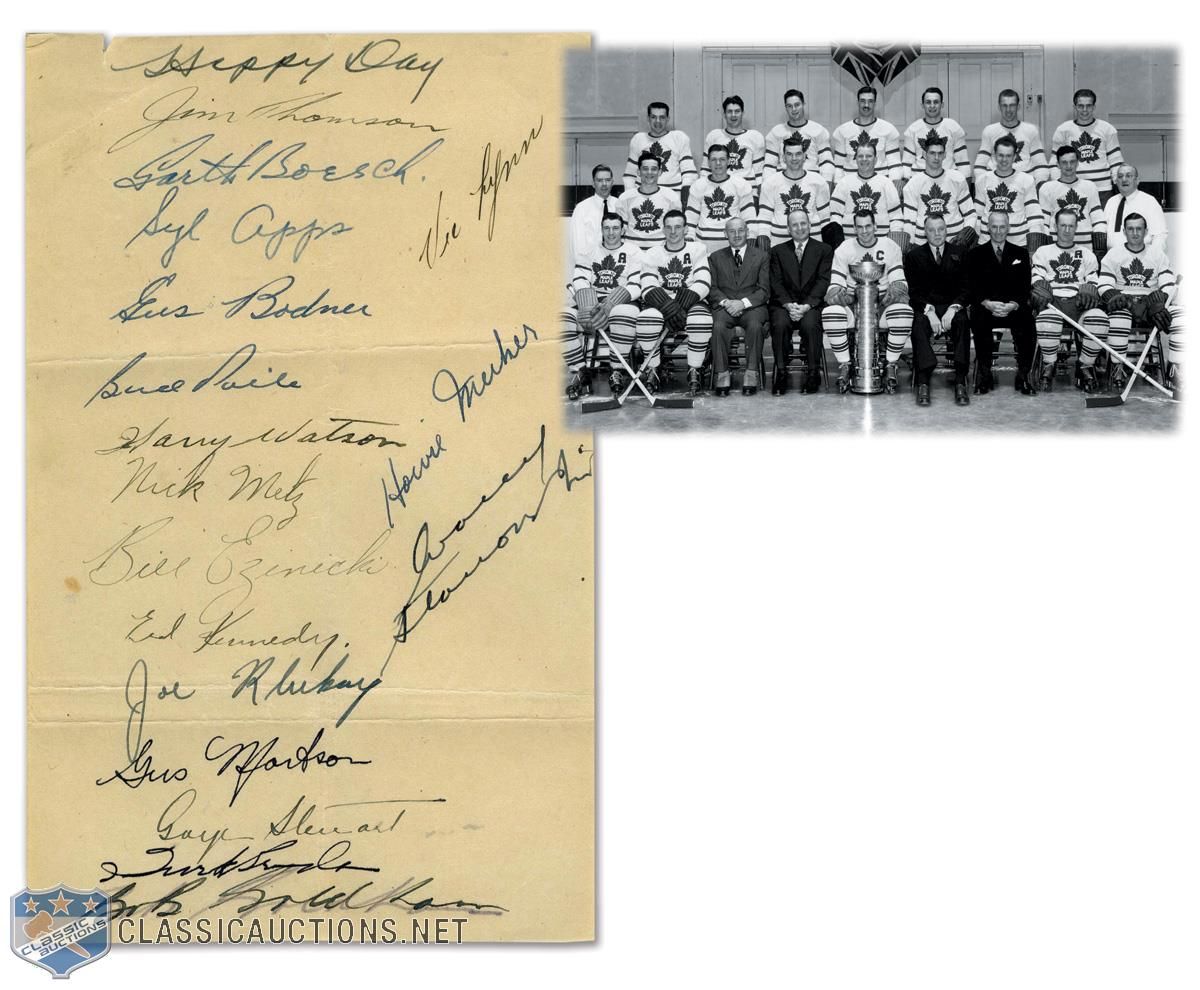 Happy Day
Jim Thomson
Garth Boesch.
Vic Lynn
Syl Apps
Gus Bodner
Bud Poile
Howie Meeker
Harry Watson
Nick Metz
Wally
Stanowski
Bill Ezinicki
Ted Kennedy.
Joe Klukay
Gus Mortson
Gaye Stewart
Turk Broda
Bob Goldham
CLASSIC
AUCTIONS
CLASSICAUCTIONS.NET
TORONTO
MAPLE
LEAFS
A
A
C
A